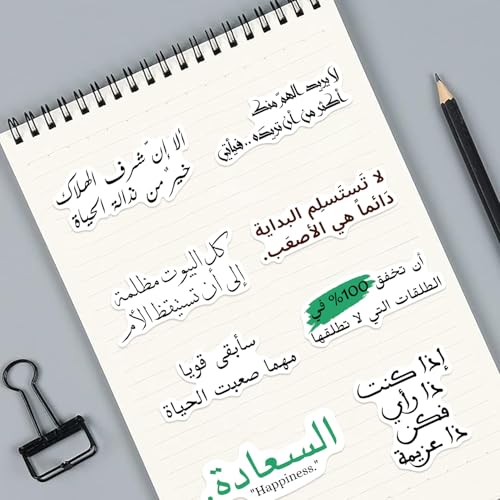 لا يريد الهمّ منك
أكثر من أن تريده.. فيأتي
ألا إنَ شرف الهلاك
خير ٌ من نذالة الحياة
لا تَستَسلم البداية
دَائماً هي الأصعَب.
كل البيوت مظلمة
إلى أن تستيقظ الأم
أن تخفق 100% في
الطلقات التي لا تطلقها
سأبقى قويا
مهما صعبت الحياة
إذا كنت
ذا رأي
فكن
ذا عزيمة
السعادة.
"Happiness."